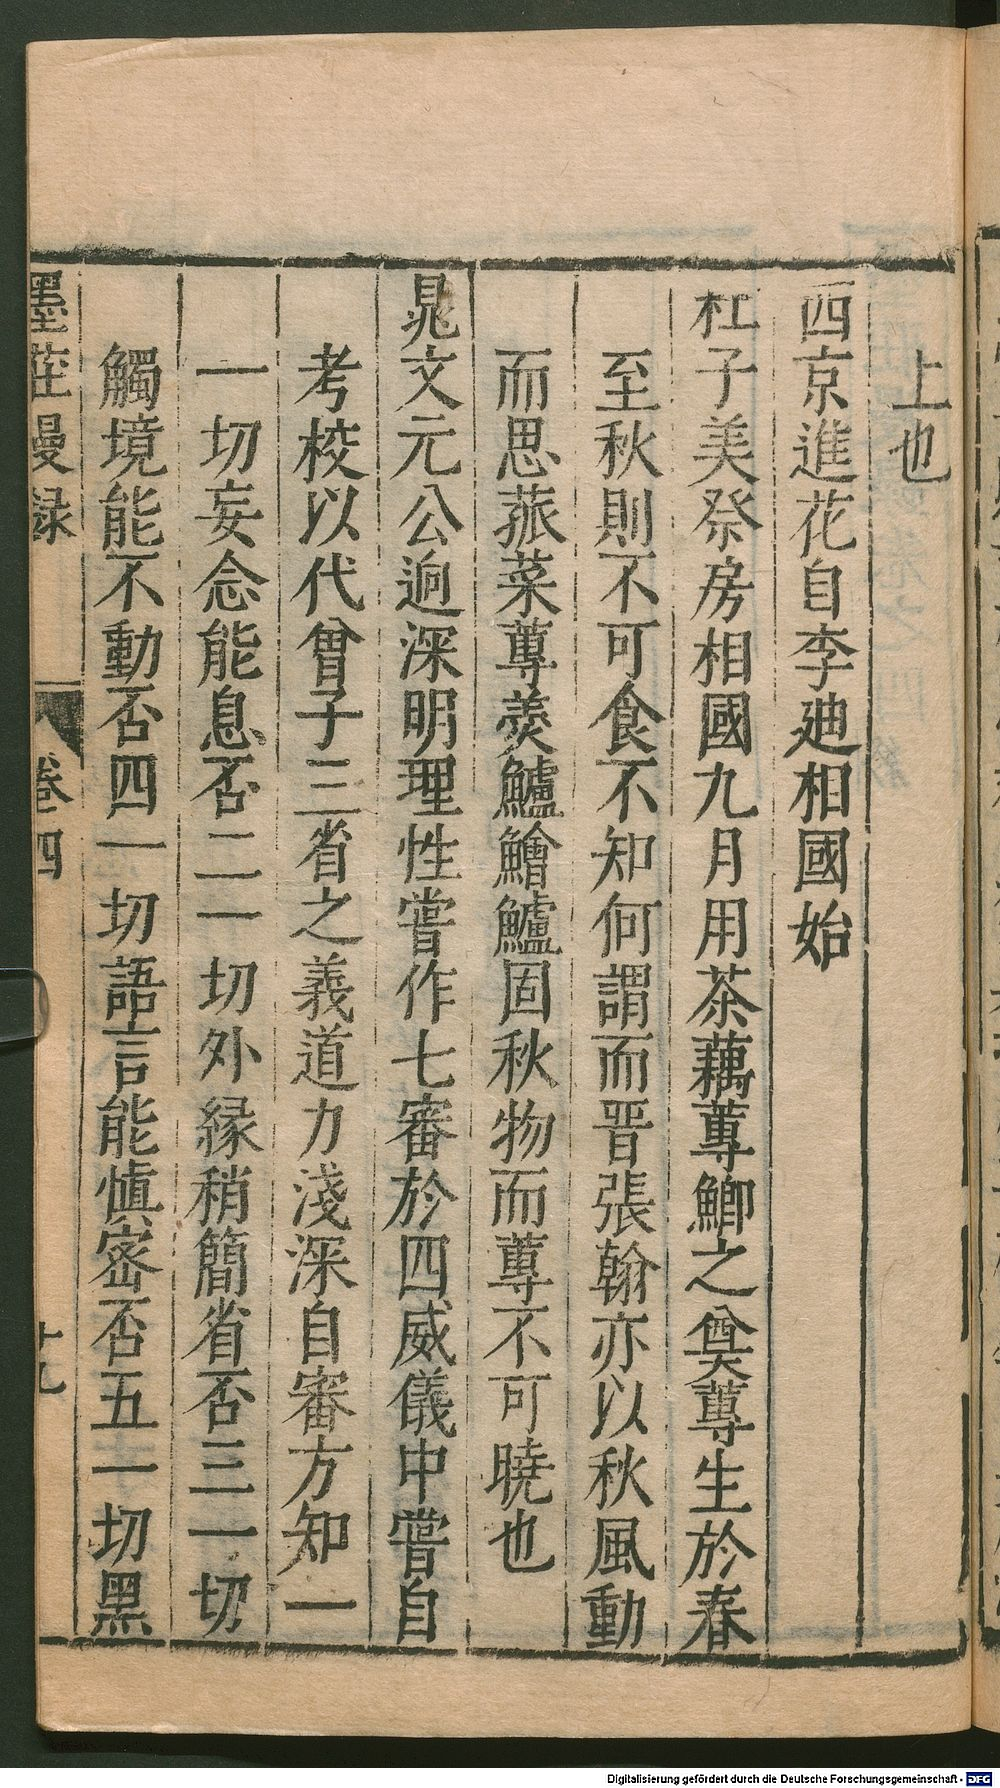 上也
西京進花自李廸相國始
杜子美祭房相國九月用茶藕蓴鯽之奠蓴生於春
至秋則不可食不知何謂而晋張翰亦以秋風動
而思菰菜蓴羹鱸鱠鱸固秋物而蓴不可曉也
晁文元公逈深明理性嘗作七審於四威儀中嘗自
考校以代曾子三省之義道力淺深自審方知一
一切妄念能息否二一切外緣稍簡省否三一切
觸境能不動否四一切語言能慎密否五一切黑
墨莊漫録 卷四 十九
Digitalisierung gefördert durch die Deutsche Forschungsgemeinschaft - DFG